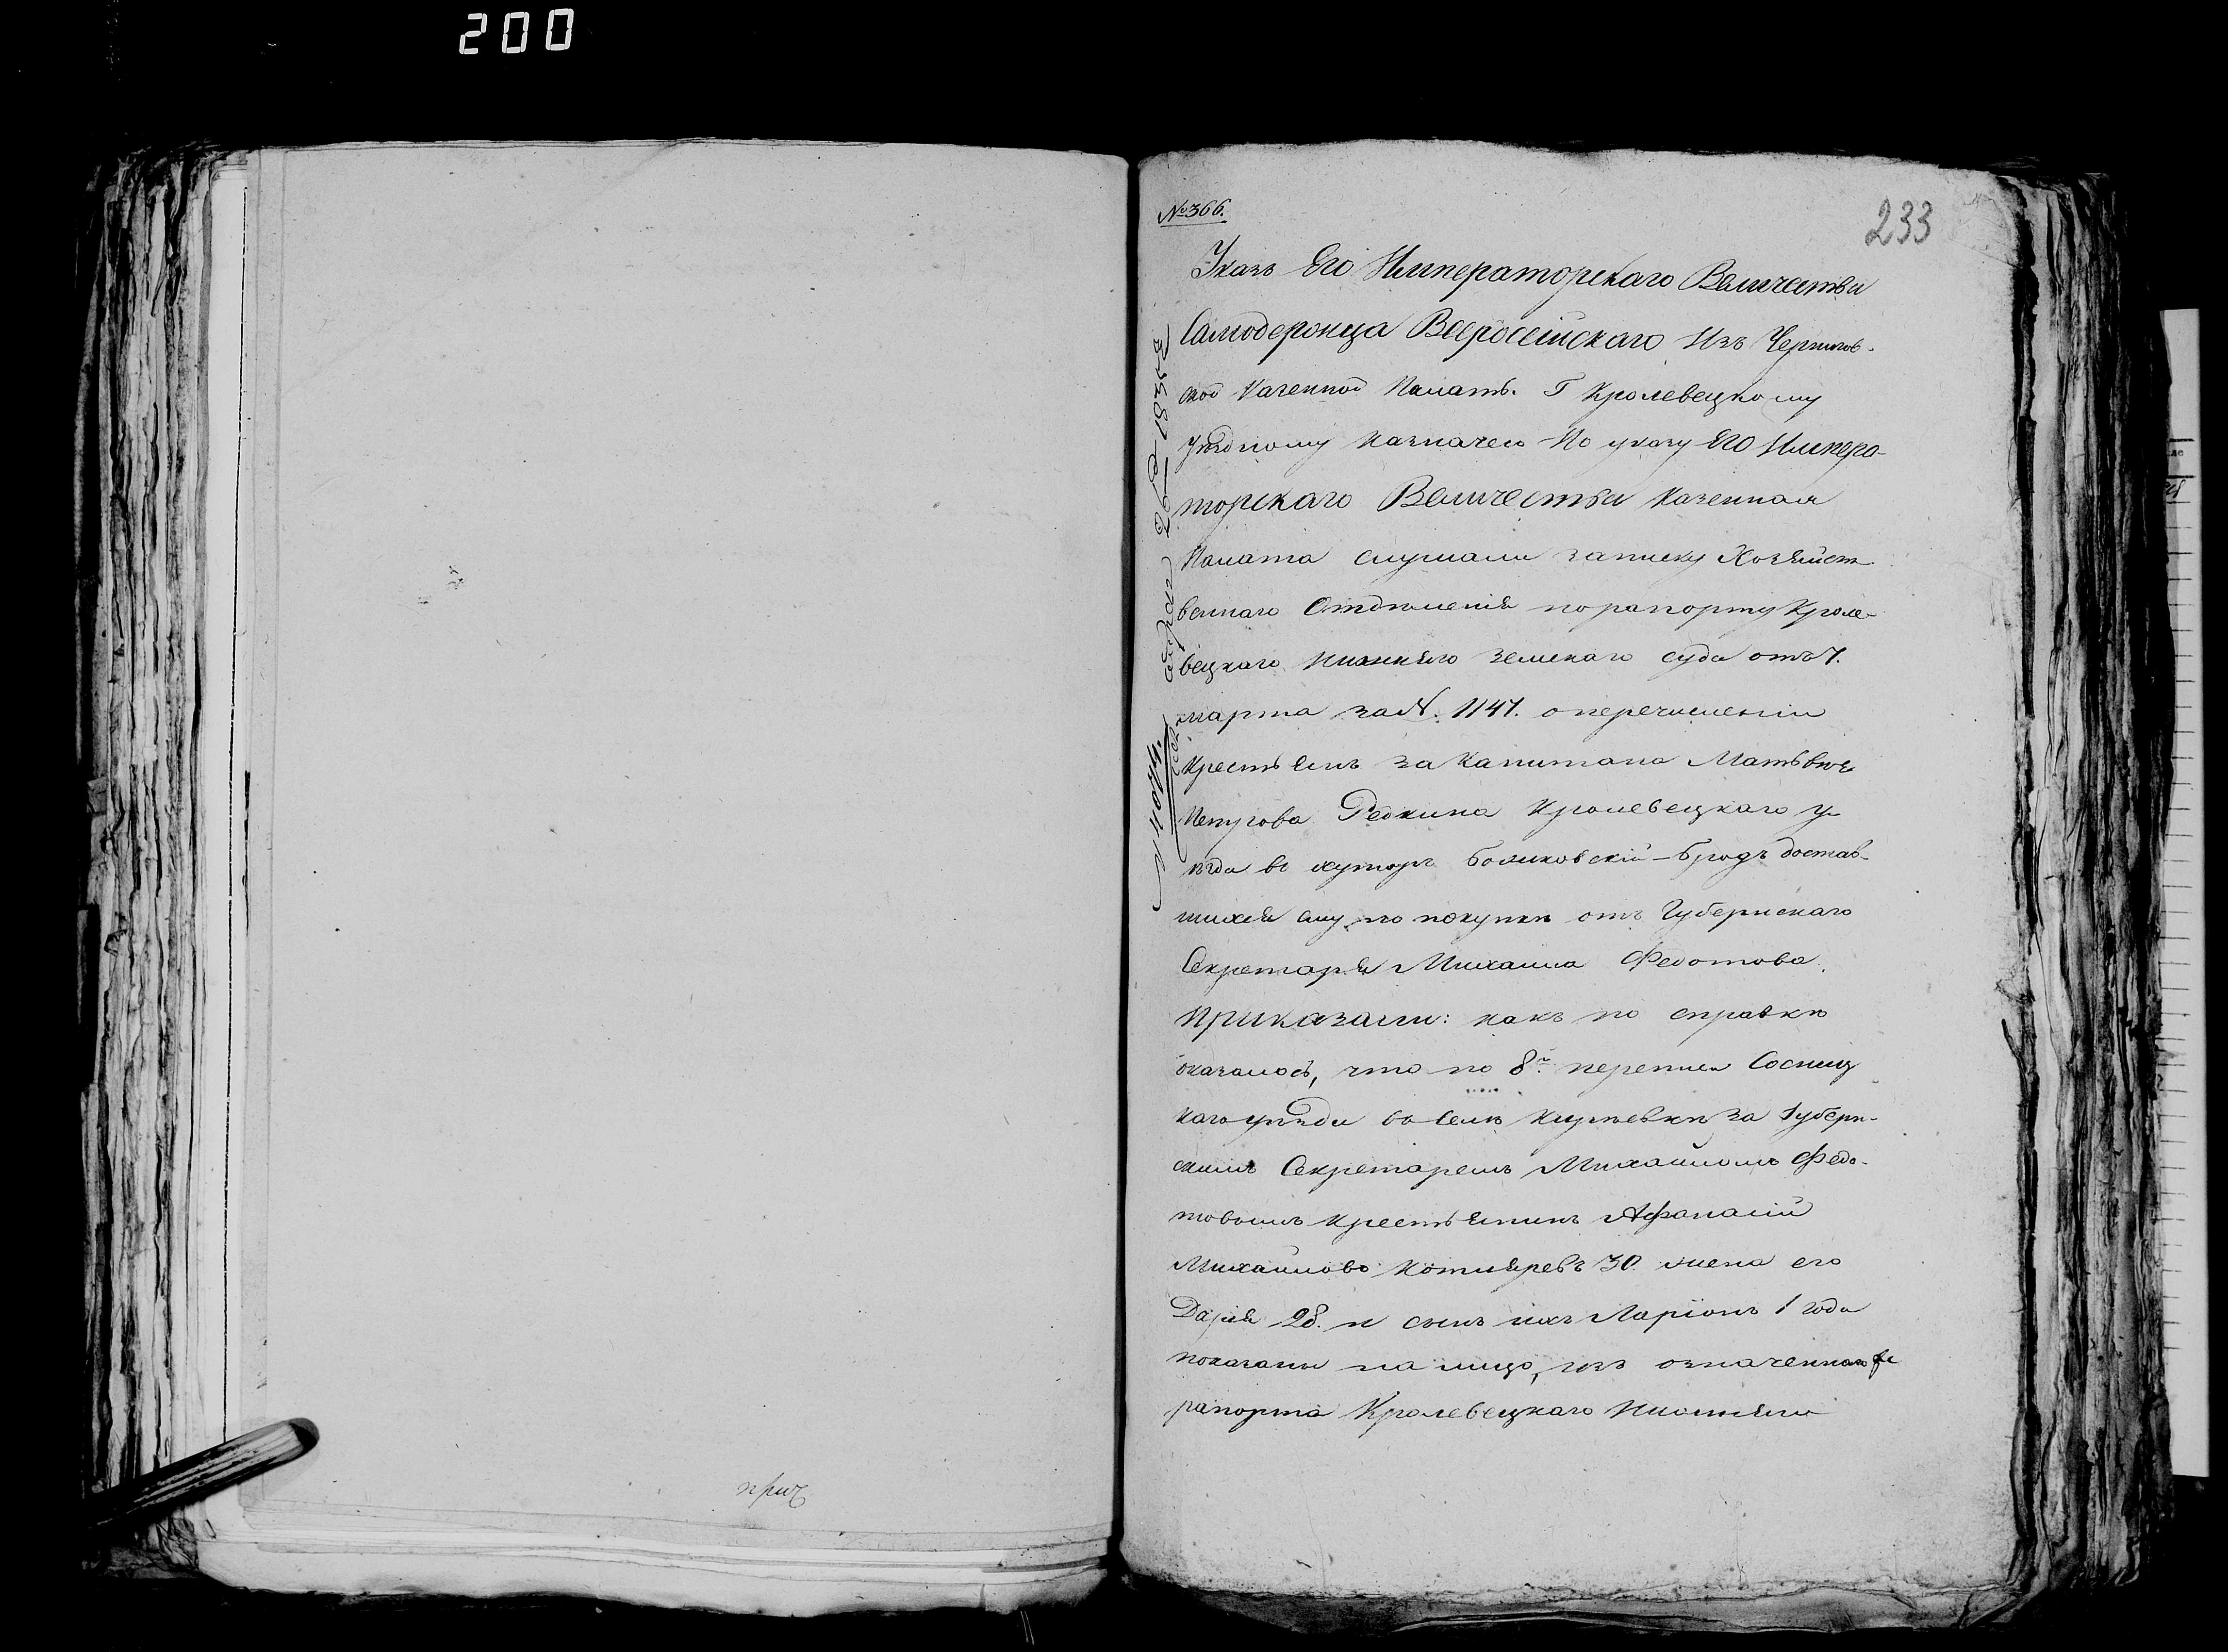 200
прич
№366.
233
Указъ Его Императорскаго Величества
Самодержца Всеросейскаго Изъ Чернигов-
ской Казенной Палатѣ. Г Кролевецкому
Уѣздному Казначею По указу Его Импера-
торскаго Величества Казенная
Палата слушали записку Хозяйст
веннаго Отдѣленія по рапорту Кроле-
вецкаго Нижняго Земскаго суда отъ 7.
марта за N. 1147. о перечисленіи
Крестьянъ за Капитана Матьвѣя
Петрова Редкина Кролевецкаго у-
ѣзда въ хуторъ -Бродъ достав-
шихся ему по покупкѣ отъ Губернскаго
Секретаря Михаила Федотова.
Приказали: какъ по справкѣ
оказалось, что по 8й переписи Сосниц
каго уѣзда въ селѣ за Губерн-
скимъ Секретаремъ Михайломъ Федо-
товымъ крестьянинъ Афанасій
Михайловъ Котляревъ 30. жена его
Дарія 28. и сынъ ихъ Ларіонъ 1 года
показаны на лицо, изъ означеннаго же
рапорта Кролевецкаго Нижняго
№ 4074.
апрѣля 29 1835